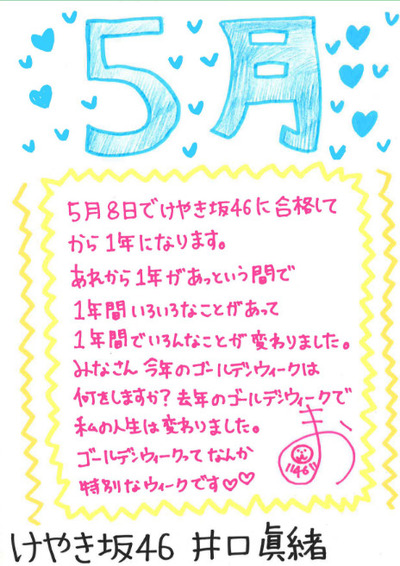 5月
5月8日でけやき坂46に合格して
から1年になります。
あれから1年があっという間で
1年間いろいろなことがあって
1年間でいろんなことが変わりました。
みなさん今年のゴールデンウィークは
何をしますか?去年のゴールデンウィークで
私の人生は変わりました。
ゴールデンウィークってなんか
特別なウィークです♡♡
ま
"46"
けやき坂46 井口眞緒